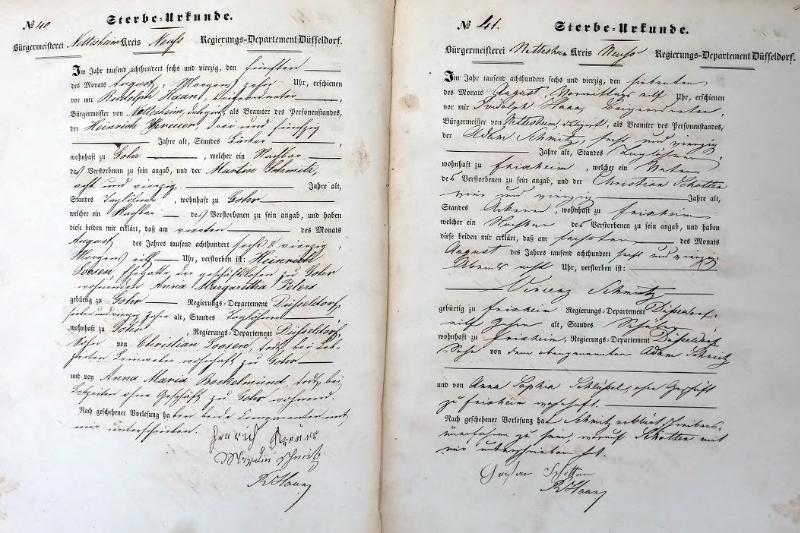 № 40 Sterbe-Urkunde.
Bürgermeisterei Nettesheim Kreis Neuß Regierungs-Departement Düsseldorf.
Im Jahr tausend achthundert sechs und vierzig, den fünften
des Monats August, Morgens zehn Uhr, erschienen
vor mir Rudolph Haan, Beigeordneter
Bürgermeister von Nettesheim, delegirt, als Beamter des Personenstandes,
der Heinrich Breuer, drei und fünfzig
Jahre alt, Standes
wohnhaft zu Gohr, welcher ein Nachbar
des Verstorbenen zu sein angab, und der Martin Schmitz,
acht und vierzig Jahre alt,
Standes Taglöhner, wohnhaft zu Gohr
welcher ein Nachbar des Verstorbenen zu sein angab, und haben
diese beiden mir erklärt, daß am vierten des Monats
August des Jahres tausend achthundert sechs & vierzig,
Morgens Uhr, verstorben ist: Heinrich
zu Gohr
wohnenden Anna Margaretha Peters
gebürtig zu Gohr Regierungs-Departement Düsseldorf,
sieben und vierzig Jahre alt, Standes Taglöhner
wohnhaft zu Gohr, Regierungs-Departement Düsseldorf,
Sohn von Christian
wohnhaft zu Gohr
und von Anna Maria Beckelmund, todt, bei
Lebzeiten ohne Geschäft zu Gohr wohnend.
Nach geschehener Vorlesung haben beide Comparenten mit
mir unterschrieben.
Henrich Breuer
Martin Schmitz
R Haan
№ 41. Sterbe-Urkunde.
Bürgermeisterei Nettesheim Kreis Neuß Regierungs-Departement Düsseldorf.
Im Jahr tausend achthundert sechs und vierzig, den siebenten
des Monats August, Vormittags elf Uhr, erschienen
vor mir Rudolph Haan Beigeordneter,
Bürgermeister von Nettesheim, delegirt, als Beamter des Personenstandes,
der Adam Schmitz, sechs und vierzig
Jahre alt, Standes Taglöhner,
wohnhaft zu Frixheim, welcher ein Vater
des Verstorbenen zu sein angab, und der Christian Schotten
vier und vierzig Jahre alt,
Standes Ackerer, wohnhaft zu Frixheim
welcher ein Nachbar des Verstorbenen zu sein angab, und haben
diese beiden mir erklärt, daß am sechsten des Monats
August des Jahres tausend achthundert sechs und vierzig
Abends acht Uhr, verstorben ist:
Vincenz Schmitz
gebürtig zu Frixheim Regierungs-Departement Düsseldorf,
alt, Standes
wohnhaft zu Frixheim, Regierungs-Departement Düsseldorf
Sohn von dem obengenannten Adam Schmitz
und von Anna Sophia ohne Geschäft
zu Frixheim wohnhaft.
Nach geschehener Vorlesung hat Schmitz erklärt Schreibens
unerfahren zu sein, worauf Schotten mit
mir unterschrieben hat.
Schotten
R Haan